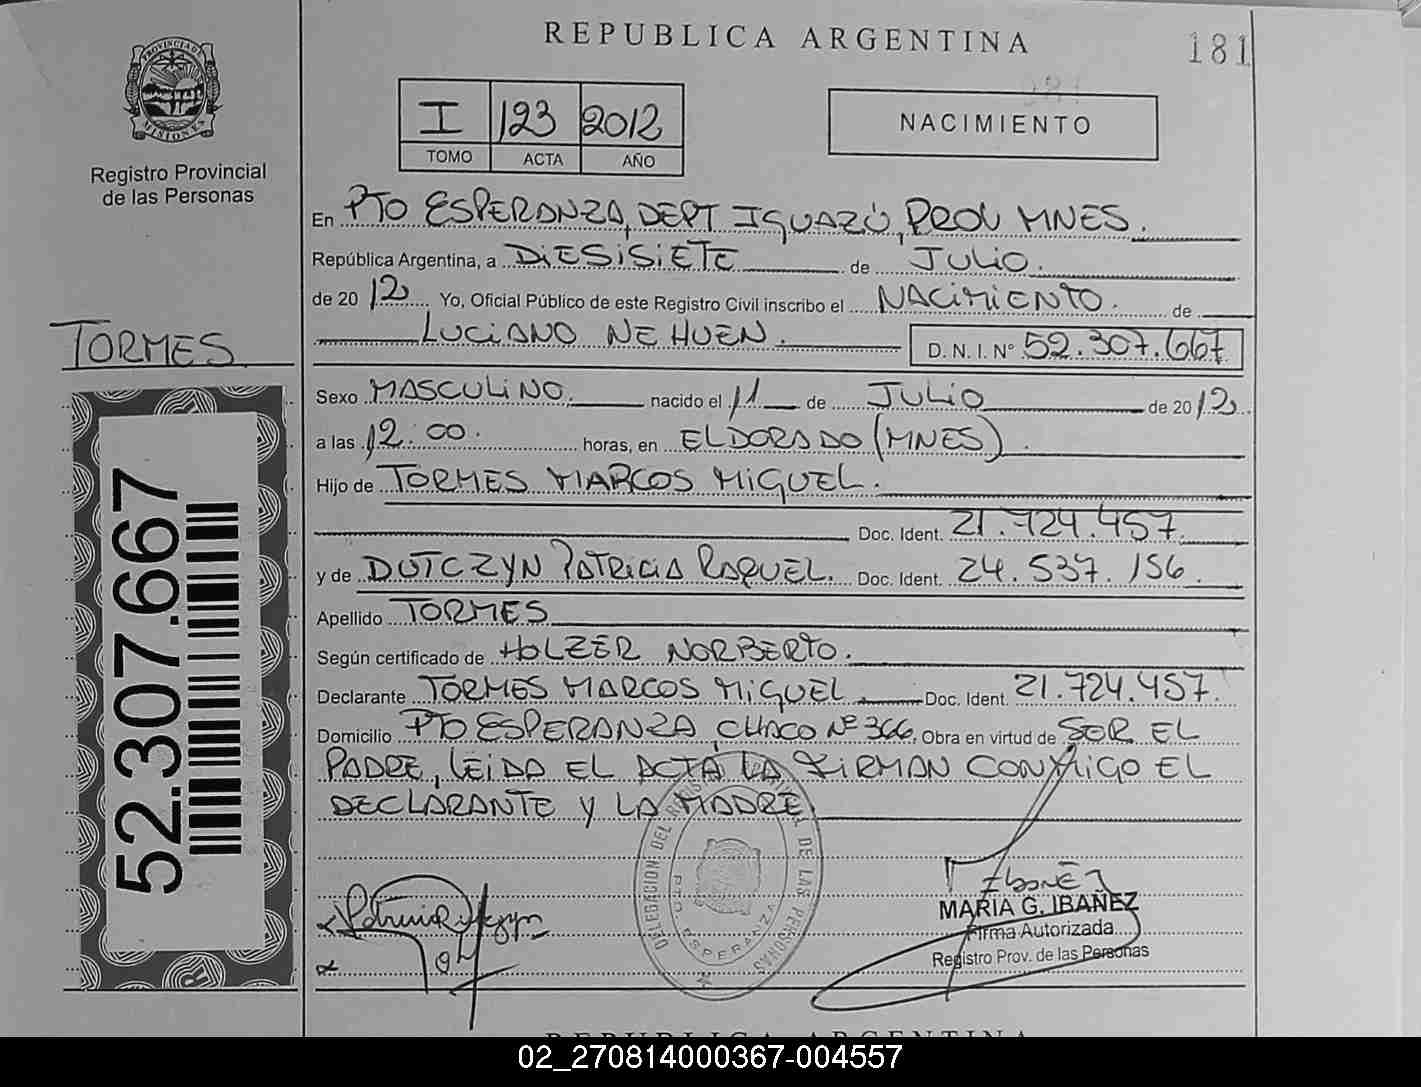 REPUBLICA ARGENTINA
181
PROVINCIA DE MISIONES
Registro Provincial
de las Personas
I 123 2012
TOMO ACTA AÑO
NACIMIENTO
En PTO ESPERANZA, DEPT IGUAZÚ, PROV MNES.
República Argentina, a DIESISIETE de JULIO.
de 20 12 Yo, Oficial Público de este Registro Civil inscribo el NACIMIENTO. de
LUCIANO NEHUEN. D. N. I. Nº 52.307.667
TORMES
Sexo MASCULINO. nacido el 11 de JULIO de 20 12
a las 12:00. horas, en ELDORADO (MNES).
Hijo de TORMES MARCOS MIGUEL.
Doc. Ident. 21.724.457.
y de DUTCZYN PATRICIA RAQUEL. Doc. Ident. 24.537.156.
Apellido TORMES
Según certificado de HOLZER NORBERTO.
Declarante TORMES MARCOS MIGUEL Doc. Ident. 21.724.457.
Domicilio PTO ESPERANZA, CHACO Nº 366, Obra en virtud de SOR EL
PADRE, LEIDA EL ACTA LA FIRMAN CONMIGO EL
DECLARANTE Y LA MADRE.
52.307.667
DELEGACION DEL REGISTRO PROVINCIAL DE LAS PERSONAS
PTO. ESPERANZA
Ibañez
MARIA G. IBAÑEZ
Firma Autorizada
Registro Prov. de las Personas
REPUBLICA ARGENTINA
02_270814000367-004557